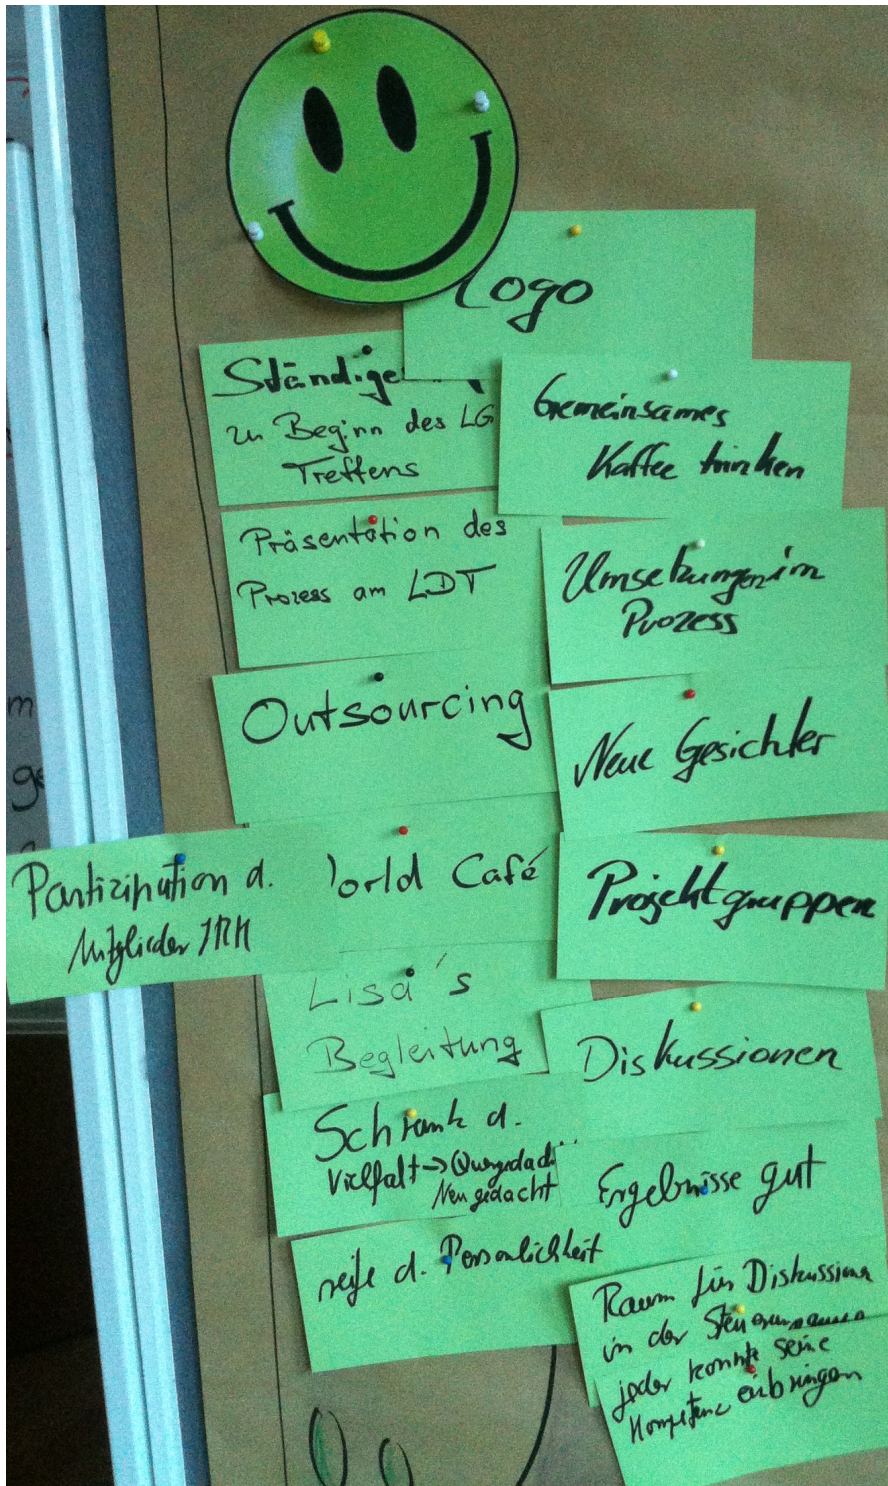 Logo
Ständige
zu Beginn des LG
Treffens
Gemeinsames
Kaffee trinken
Präsentation des
Prozess am LDT
Umsetzungen im
Prozess
Outsourcing
Neue Gesichter
Partizipation d.
Mitglieder
orld Café
Projektgruppen
Lisa's
Begleitung
Diskussionen
Schrank d.
Vielfalt → Quergedacht
Neu gedacht
Ergebnisse gut
reife d. Persönlichkeit
Raum für Diskussionen
in der
jeder konnte seine
Kompetenz einbringen
m
ge